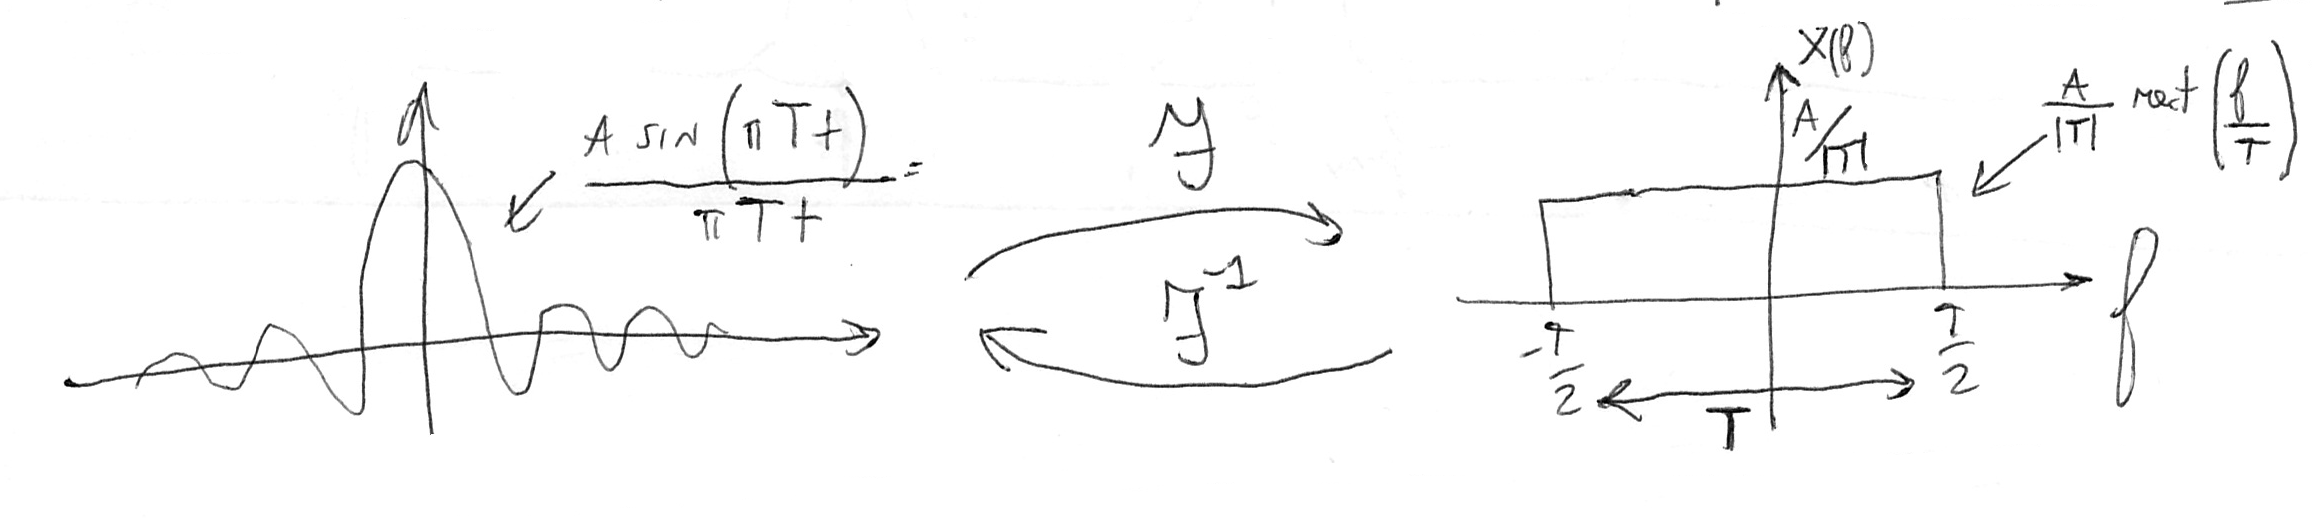 A sin(πTt) =
πTt
ℱ
ℱ⁻¹
X(f)
A/|T|
A/|T| rect(f/T)
-T/2
T/2
T
f